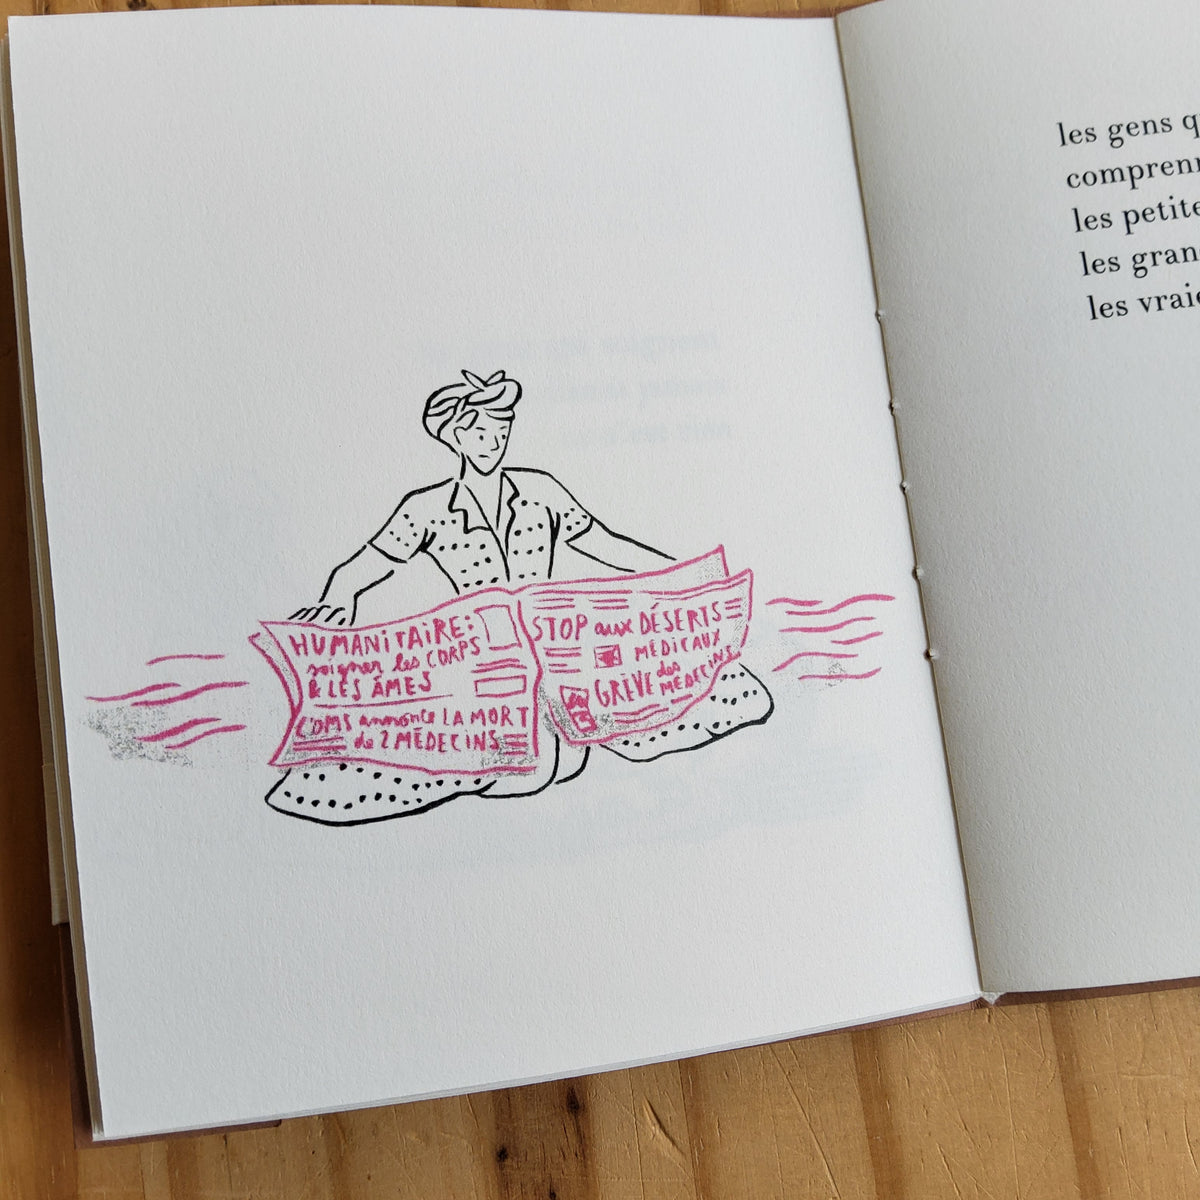 HUMANiTAiRE:
soigner les CORPS
& LES ÂMES
L'OMS annonce LA MORT
de 2 MÉDECINS
STOP aux DÉSERTS
MÉDICAUX
GRÈVE des
MÉDECINS
les gens q
comprenn
les petite
les gran
les vraie